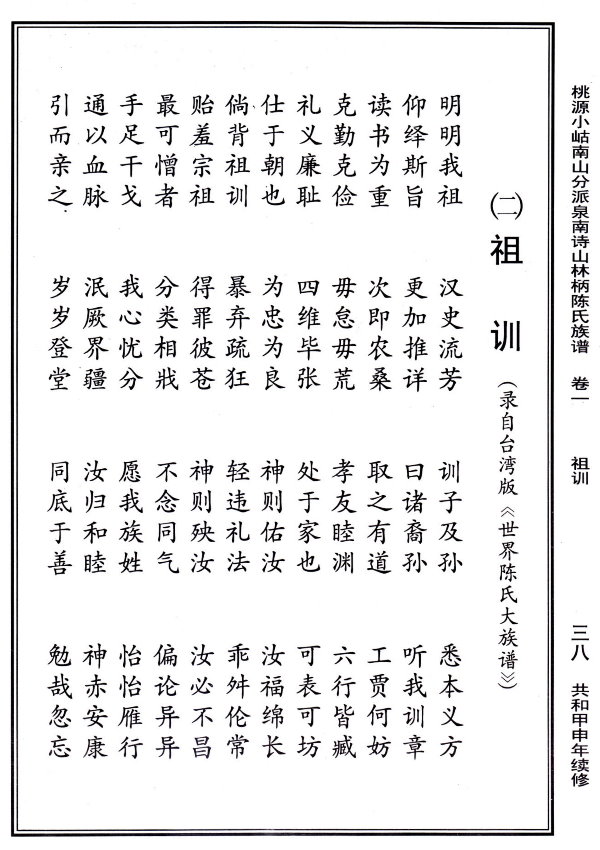 桃源小岵南山分派泉南诗山林柄陈氏族谱 卷一 祖训 三八 共和甲申年续修
㈡祖训(录自台湾版《世界陈氏大族谱》)
明明我祖 汉史流芳 训子及孙 悉本义方
仰绎斯旨 更加推详 曰诸裔孙 听我训章
读书为重 次即农桑 取之有道 工贾何妨
克勤克俭 毋怠毋荒 孝友睦渊 六行皆臧
礼义廉耻 四维毕张 处于家也 可表可坊
仕于朝也 为忠为良 神则佑汝 汝福绵长
倘背祖训 暴弃疏狂 轻违礼法 乖舛伦常
贻羞宗祖 得罪彼苍 神则殃汝 汝必不昌
最可憎者 分类相戕 不念同气 偏论异异
手足干戈 我心忧分 愿我族姓 怡怡雁行
通以血脉 泯厥界疆 汝归和睦 神赤安康
引而亲之 岁岁登堂 同底于善 勉哉忽忘